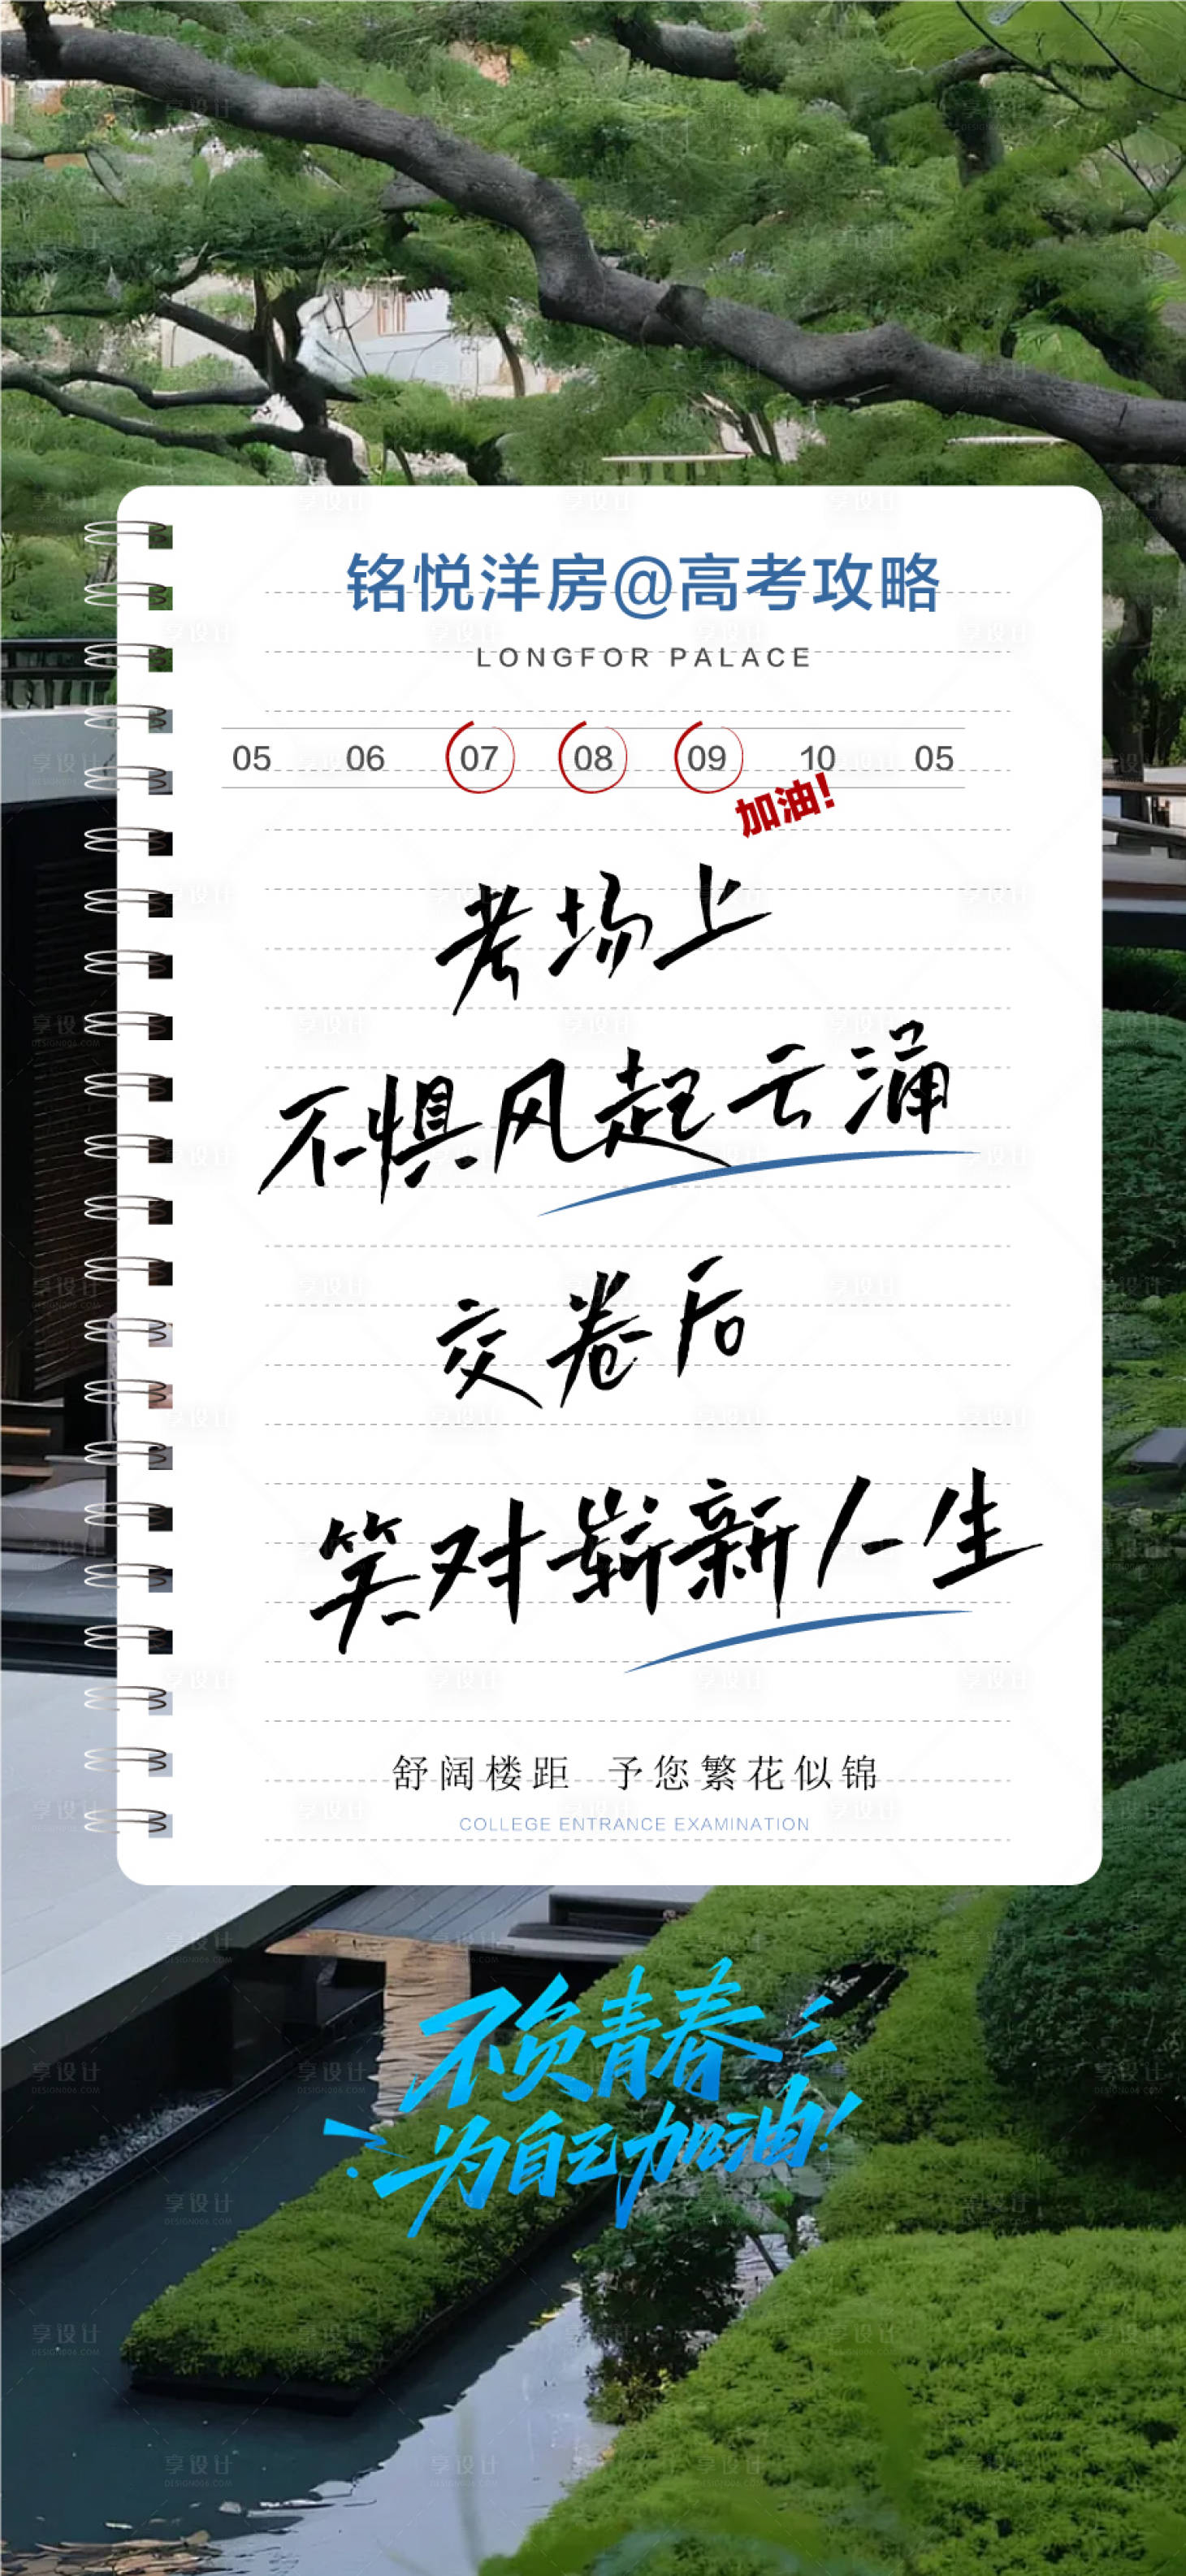 铭悦洋房@高考攻略
LONGFOR PALACE
05 06 07 08 09 10 05
加油!
考场上
不惧风起云涌
交卷后
笑对崭新人生
舒阔楼距 予您繁花似锦
COLLEGE ENTRANCE EXAMINATION
不负青春
为自己加油!
享设计
DESIGN006.COM